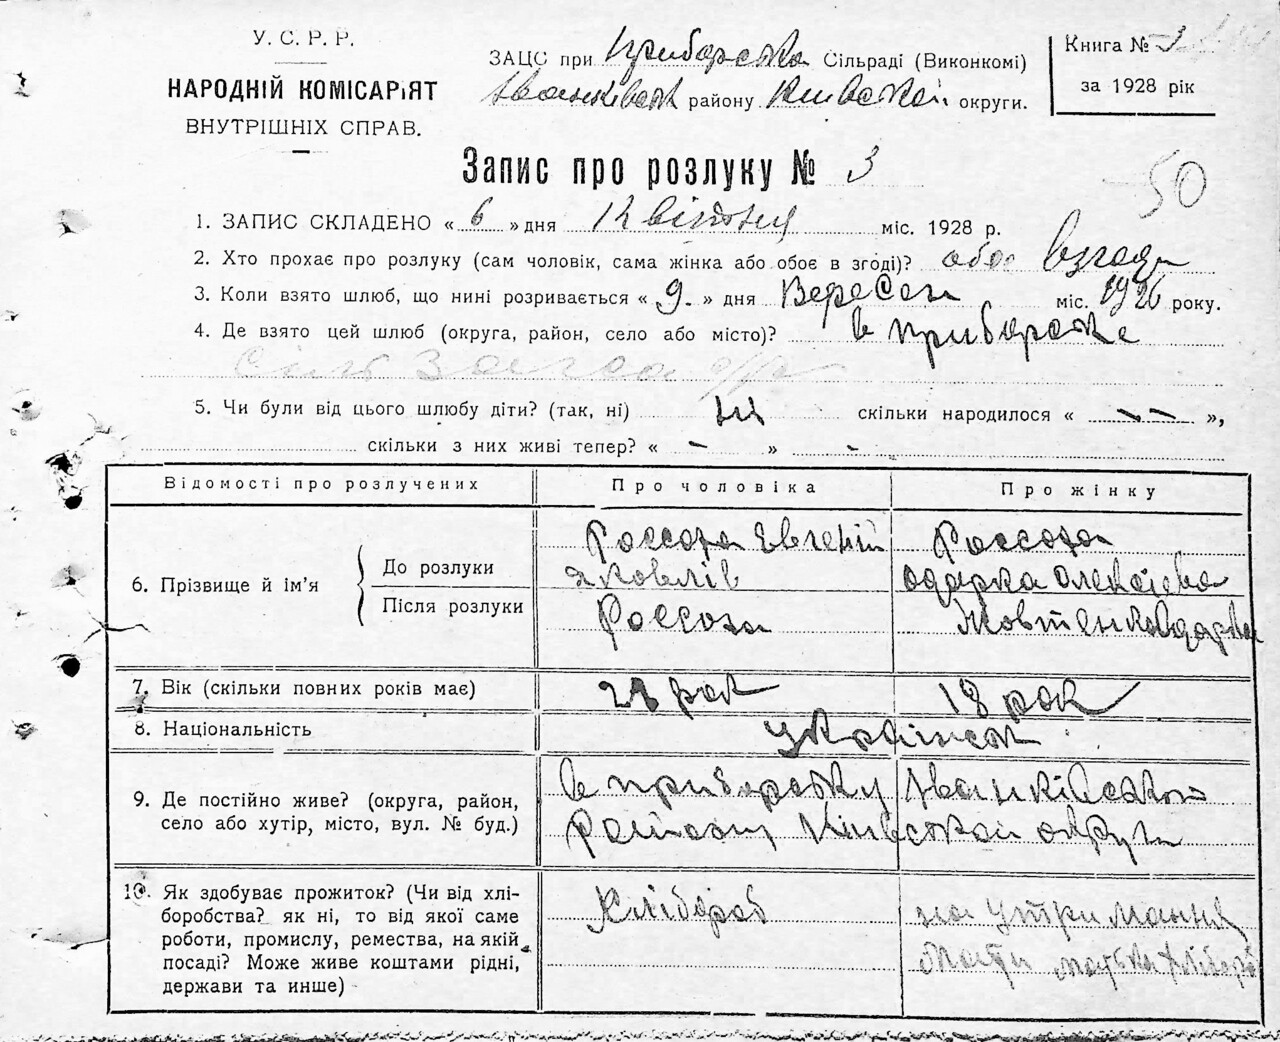 У. С. Р. Р.
НАРОДНІЙ КОМІСАРіЯТ
ВНУТРІШНІХ СПРАВ.
ЗАЦС при Приборська Сільраді (Виконкомі)
Іванківськ району Київської округи.
Книга № 3
за 1928 рік
Запис про розлуку № 3
50
1. ЗАПИС СКЛАДЕНО « 6 » дня Квітня міс. 1928 р.
2. Хто прохає про розлуку (сам чоловік, сама жінка або обоє в згоді)? обоє взгоди
3. Коли взято шлюб, що нині розривається « 9. » дня Вересня міс. 1926 року.
4. Де взято цей шлюб (округа, район, село або місто)? в приборске
5. Чи були від цього шлюбу діти? (так, ні) ні скільки народилося « – – »,
скільки з них живі тепер? « – » –
Відомості про розлучених Про чоловіка Про жінку
6. Прізвище й ім'я
До розлуки
Після розлуки
Россоха Евгеній
Яковлів
Россоха
Россоха
Одарка Олексіева
Жовтенко Одарка
7. Вік (скільки повних років має) рок 18 рок
8. Національність українск
9. Де постійно живе? (округа, район,
село або хутір, місто, вул. № буд.)
в приборску Іванківской
району Київской округи
10. Як здобуває прожиток? (Чи від хлі-
боробства? як ні, то від якої саме
роботи, промислу, ремества, на якій
посаді? Може живе коштами рідні,
держави та инше)
Хлібороб
на утримання
батька хлібороб